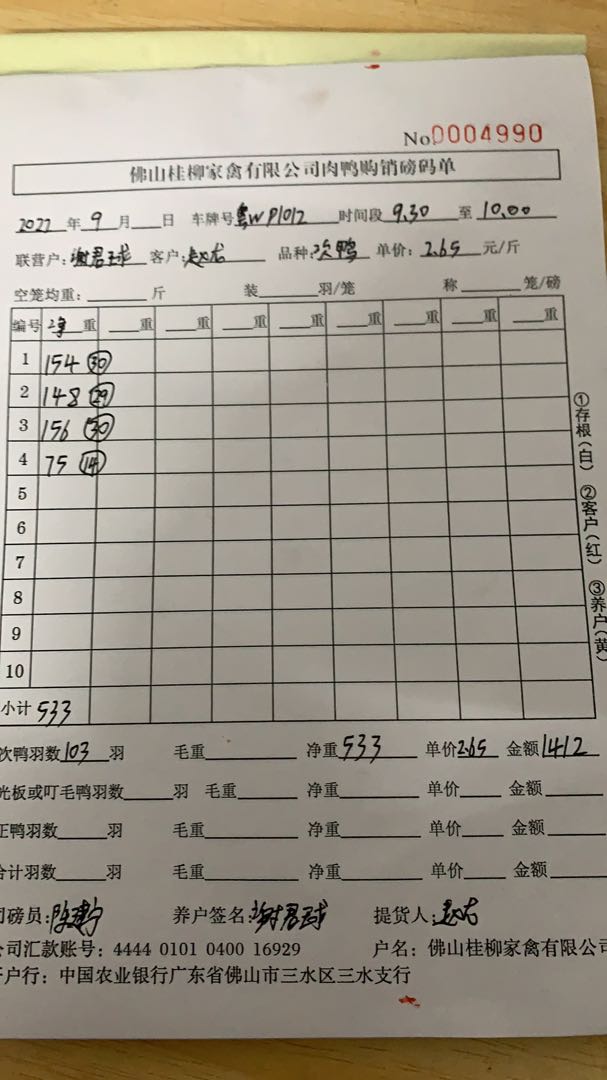 No.0004990
佛山桂柳家禽有限公司肉鸭购销磅码单
2022 年 9 月 日 车牌号 粤WP1012 时间段 9.30 至 10.00
联营户: 谢君球 客户: 赵龙 品种: 次鸭 单价: 2.65 元/斤
空笼均重: 斤 装 羽/笼 称 笼/磅
编号 净 重 重 重 重 重 重 重 重 重
1 154 30
2 148 29
3 156 30
4 75 14
5
6
7
8
9
10
小计 533
①存根(白) ②客户(红) ③养户(黄)
次鸭羽数 103 羽 毛重 净重 533 单价 2.65 金额 1412
光板或叮毛鸭羽数 羽 毛重 净重 单价 金额
正鸭羽数 羽 毛重 净重 单价 金额
合计羽数 羽 毛重 净重 单价 金额
司磅员: 养户签名: 谢君球 提货人: 赵龙
公司汇款账号: 4444 0101 0400 16929 户名: 佛山桂柳家禽有限公司
开户行: 中国农业银行广东省佛山市三水区三水支行